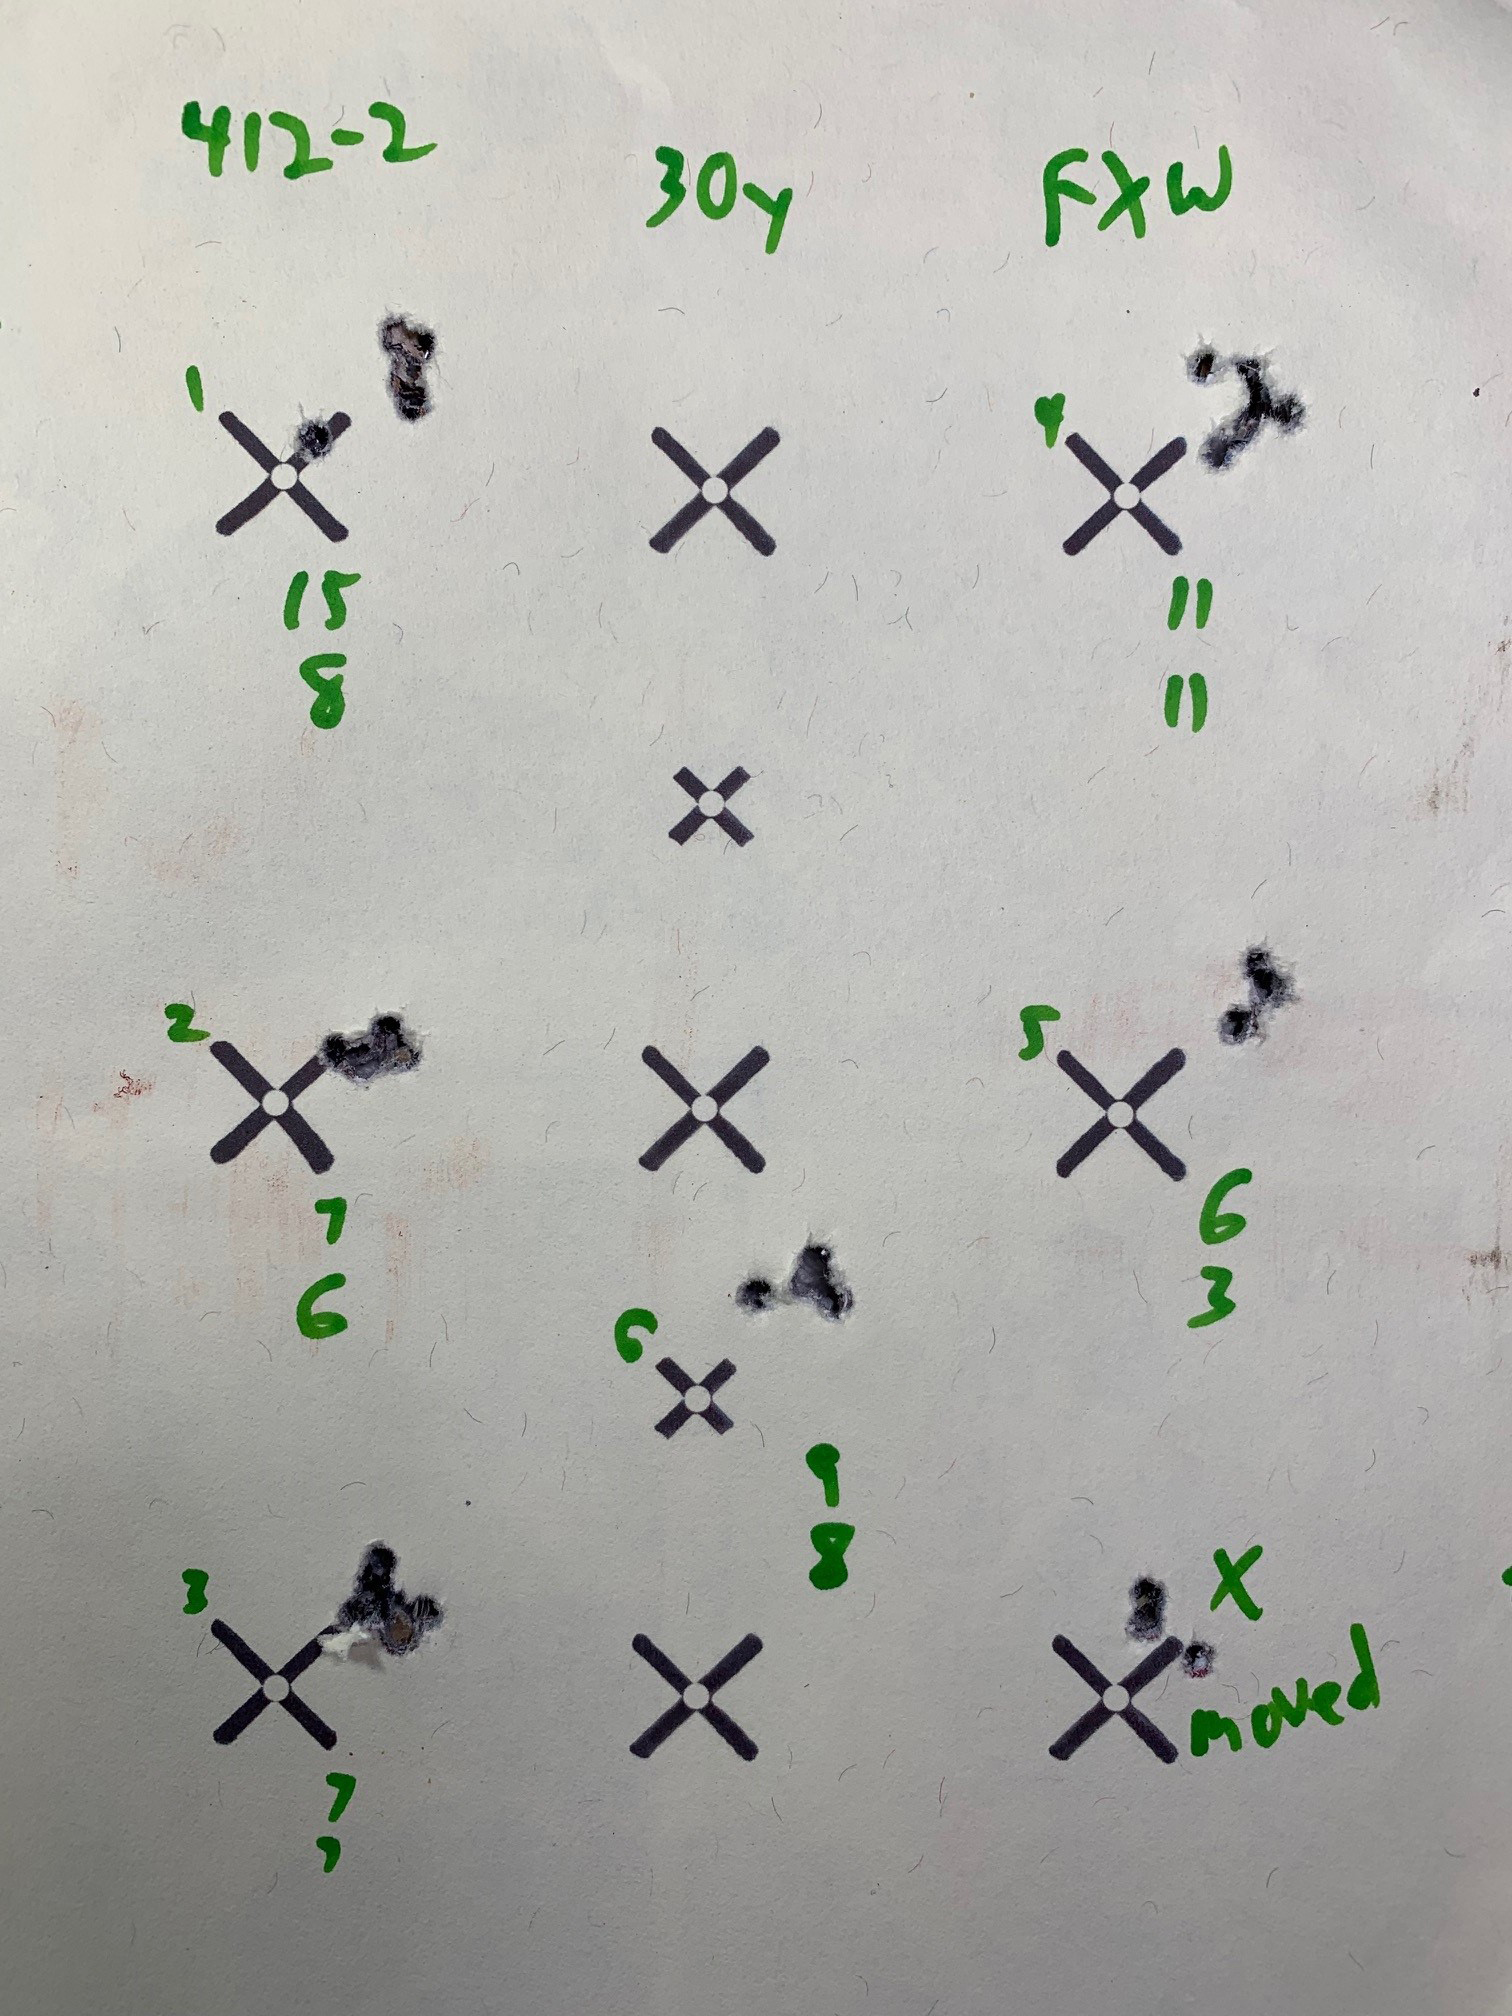 412-2 30y FXW
1
4
15
8
11
11
2
5
7
6
6
3
6
9
8
3
X
moved
7
7